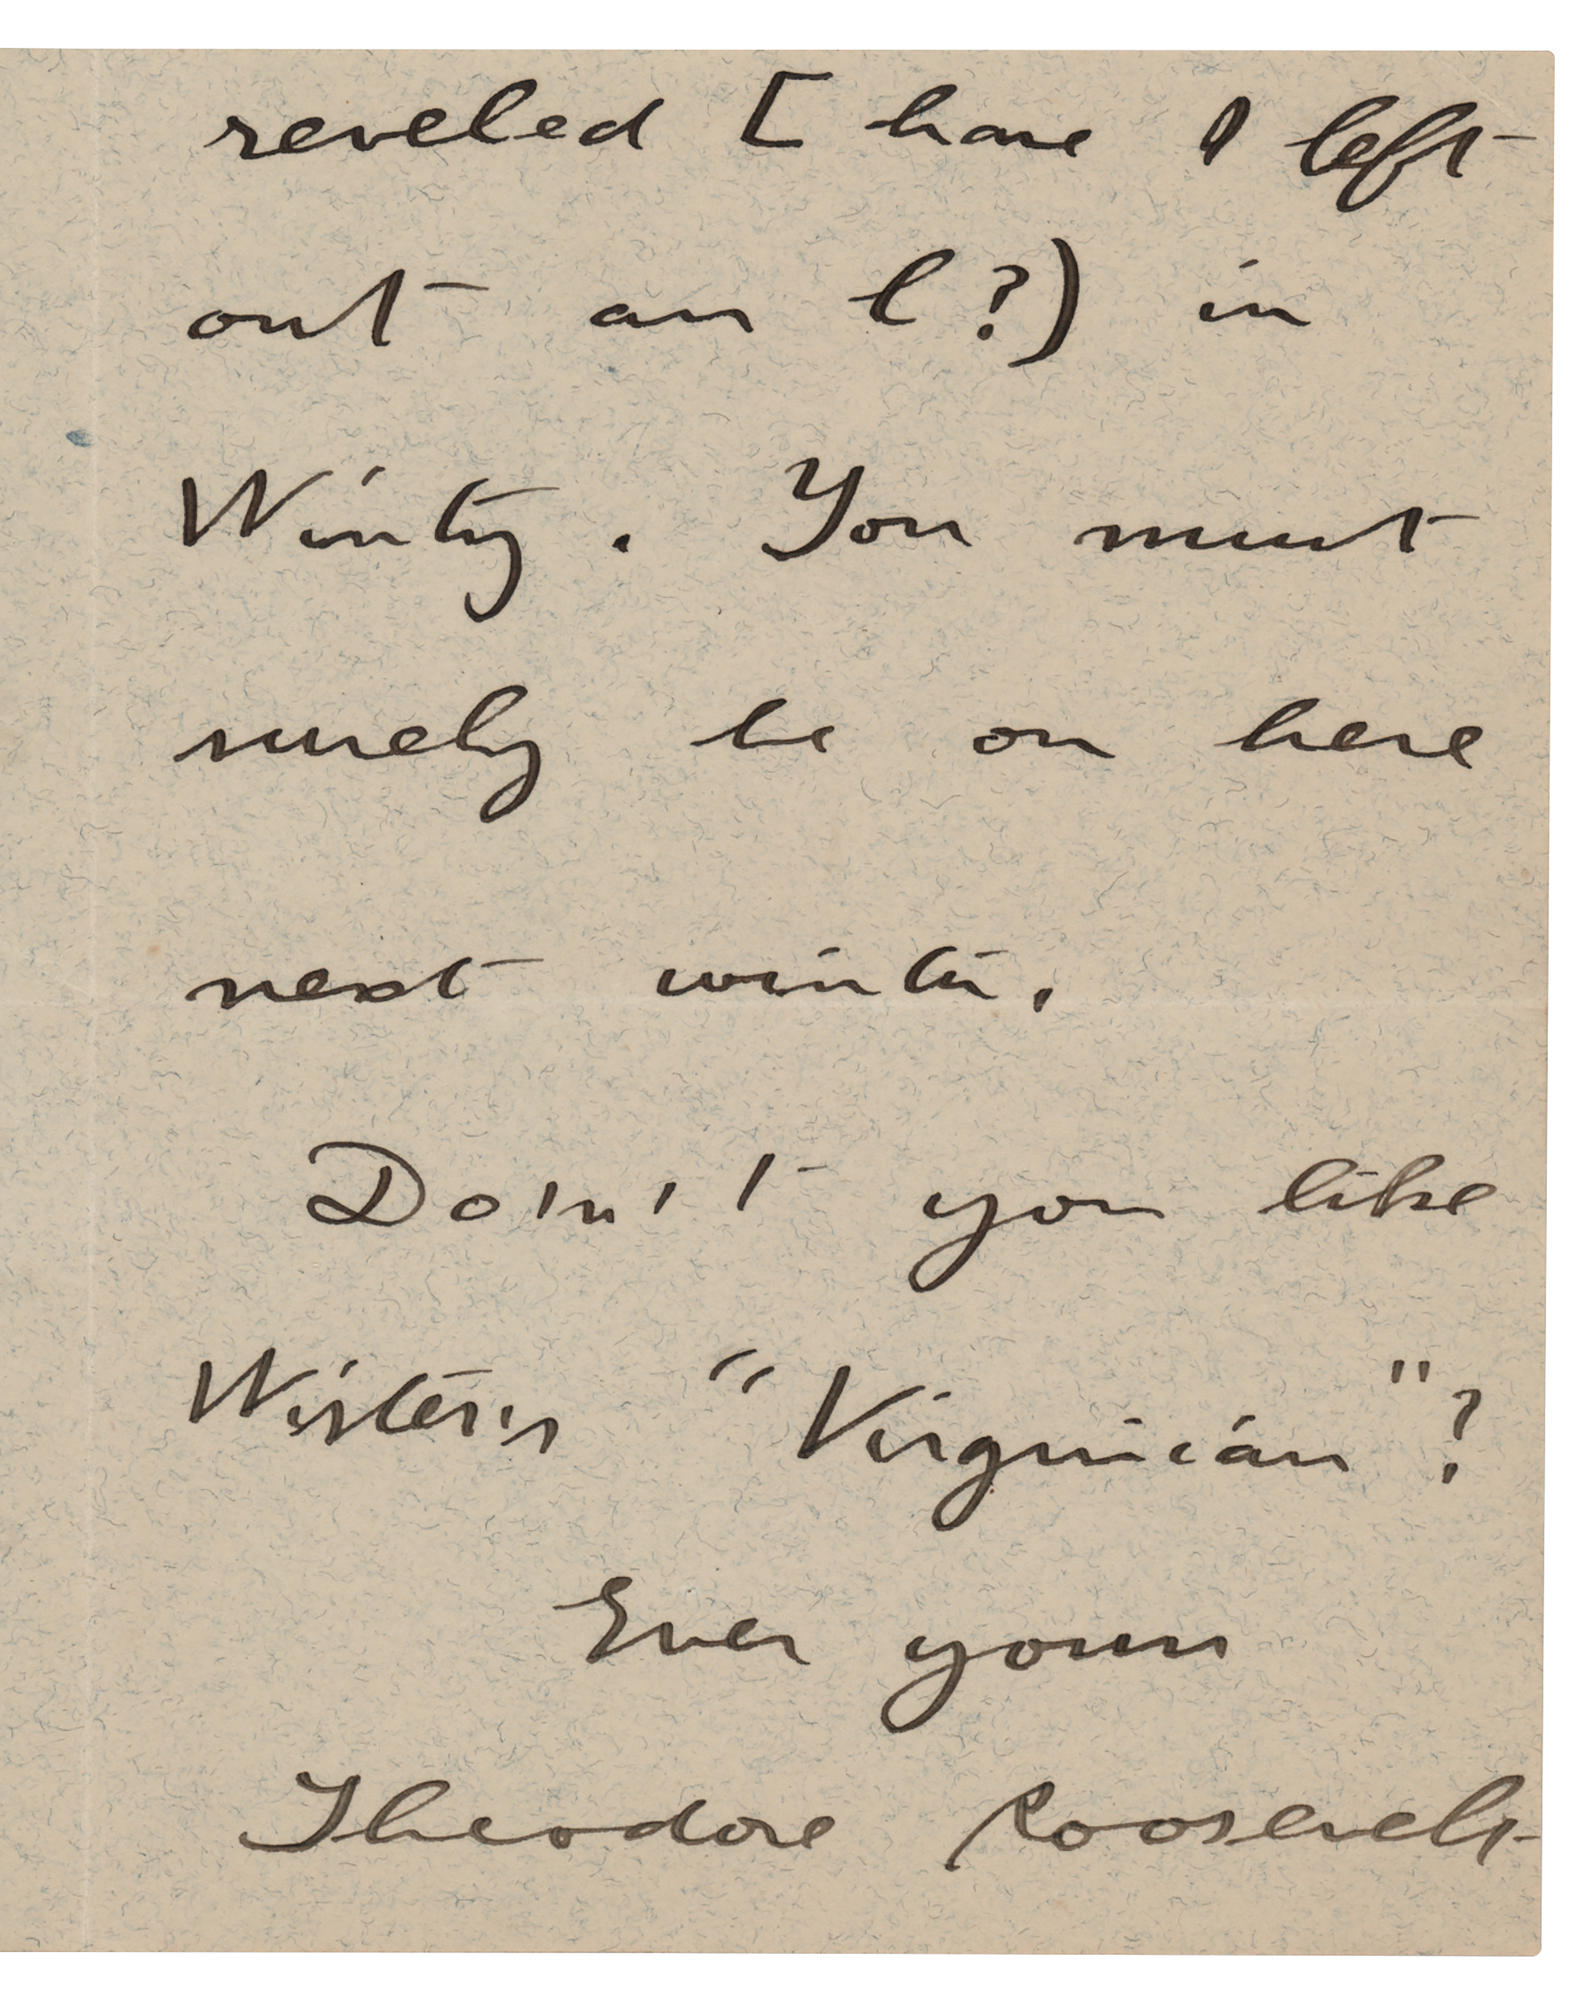 reveled [have I left
out an l?) in
Winty. You must
surely be on here
next winter.
Do'n't you like
Wister's "Virginian"?
Ever yours
Theodore Roosevelt